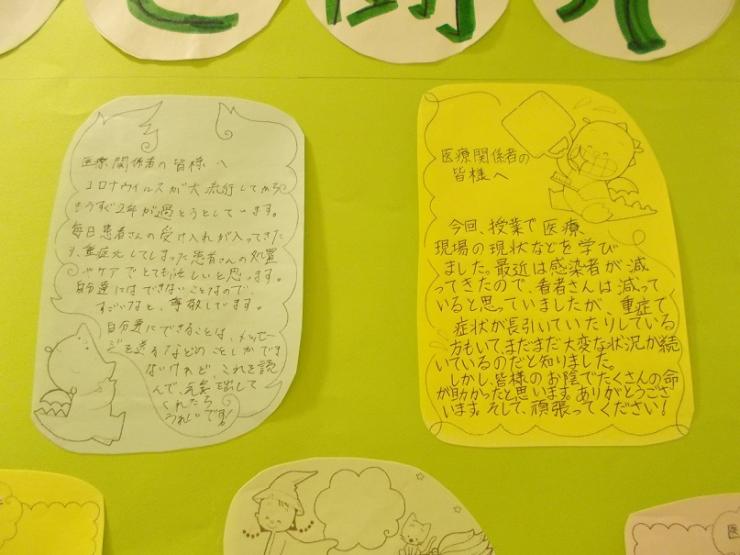 と闘
医療関係者の皆様へ
コロナウイルスが大流行してから
もうすぐ2年が過とうとしています。
毎日患者さんの受け入れが入ってきた
り、重症化してしまった患者さんの処置
やケアでとても忙しいと思います。
自分達にはできないことなので、
すごいなと、尊敬してます。
自分達にできることは、メッセー
ジを送るなどのことしかでき
ないけれど、これを読
んで、元気を出して
くれたら
うれしいです!
医療関係者の
皆様へ
今回、授業で医療
現場の現状などを学び
ました。最近は感染者が減
ってきたので、看者さんは減って
いると思っていましたが、重症で
症状が長引いていたりしている
方もいて、まだまだ大変な状況が続
いているのだと知りました。
しかし、皆様のお陰でたくさんの命
が助かったと思います。ありがとうござ
います。そして、頑張ってください!
医